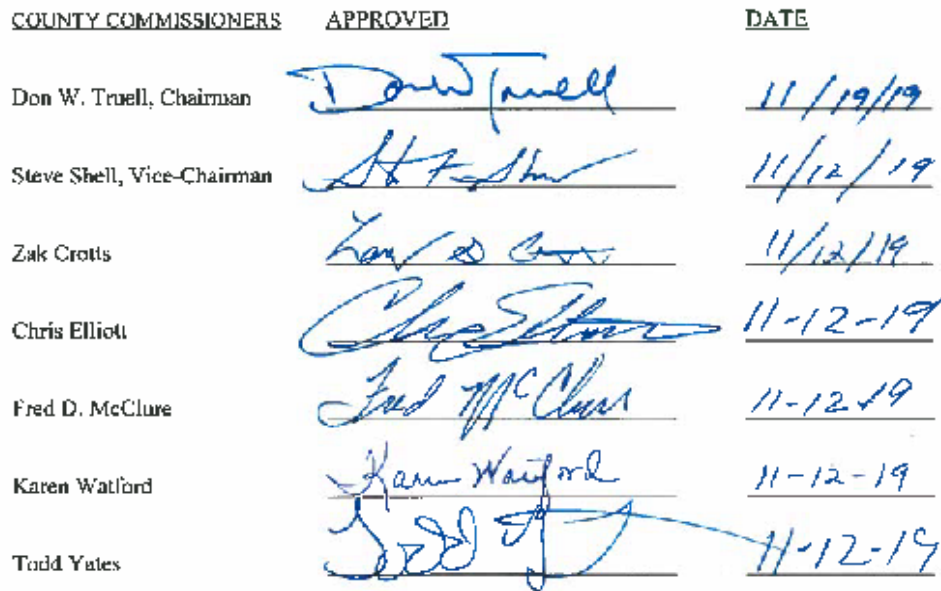 COUNTY COMMISSIONERS APPROVED DATE
Don W. Truell, Chairman Don W Truell 11/19/19
Steve Shell, Vice-Chairman 11/12/19
Zak Crotts 11/12/19
Chris Elliott 11-12-19
Fred D. McClure Fred McClure 11-12-19
Karen Watford Karen Watford 11-12-19
Todd Yates Todd Y 11-12-19